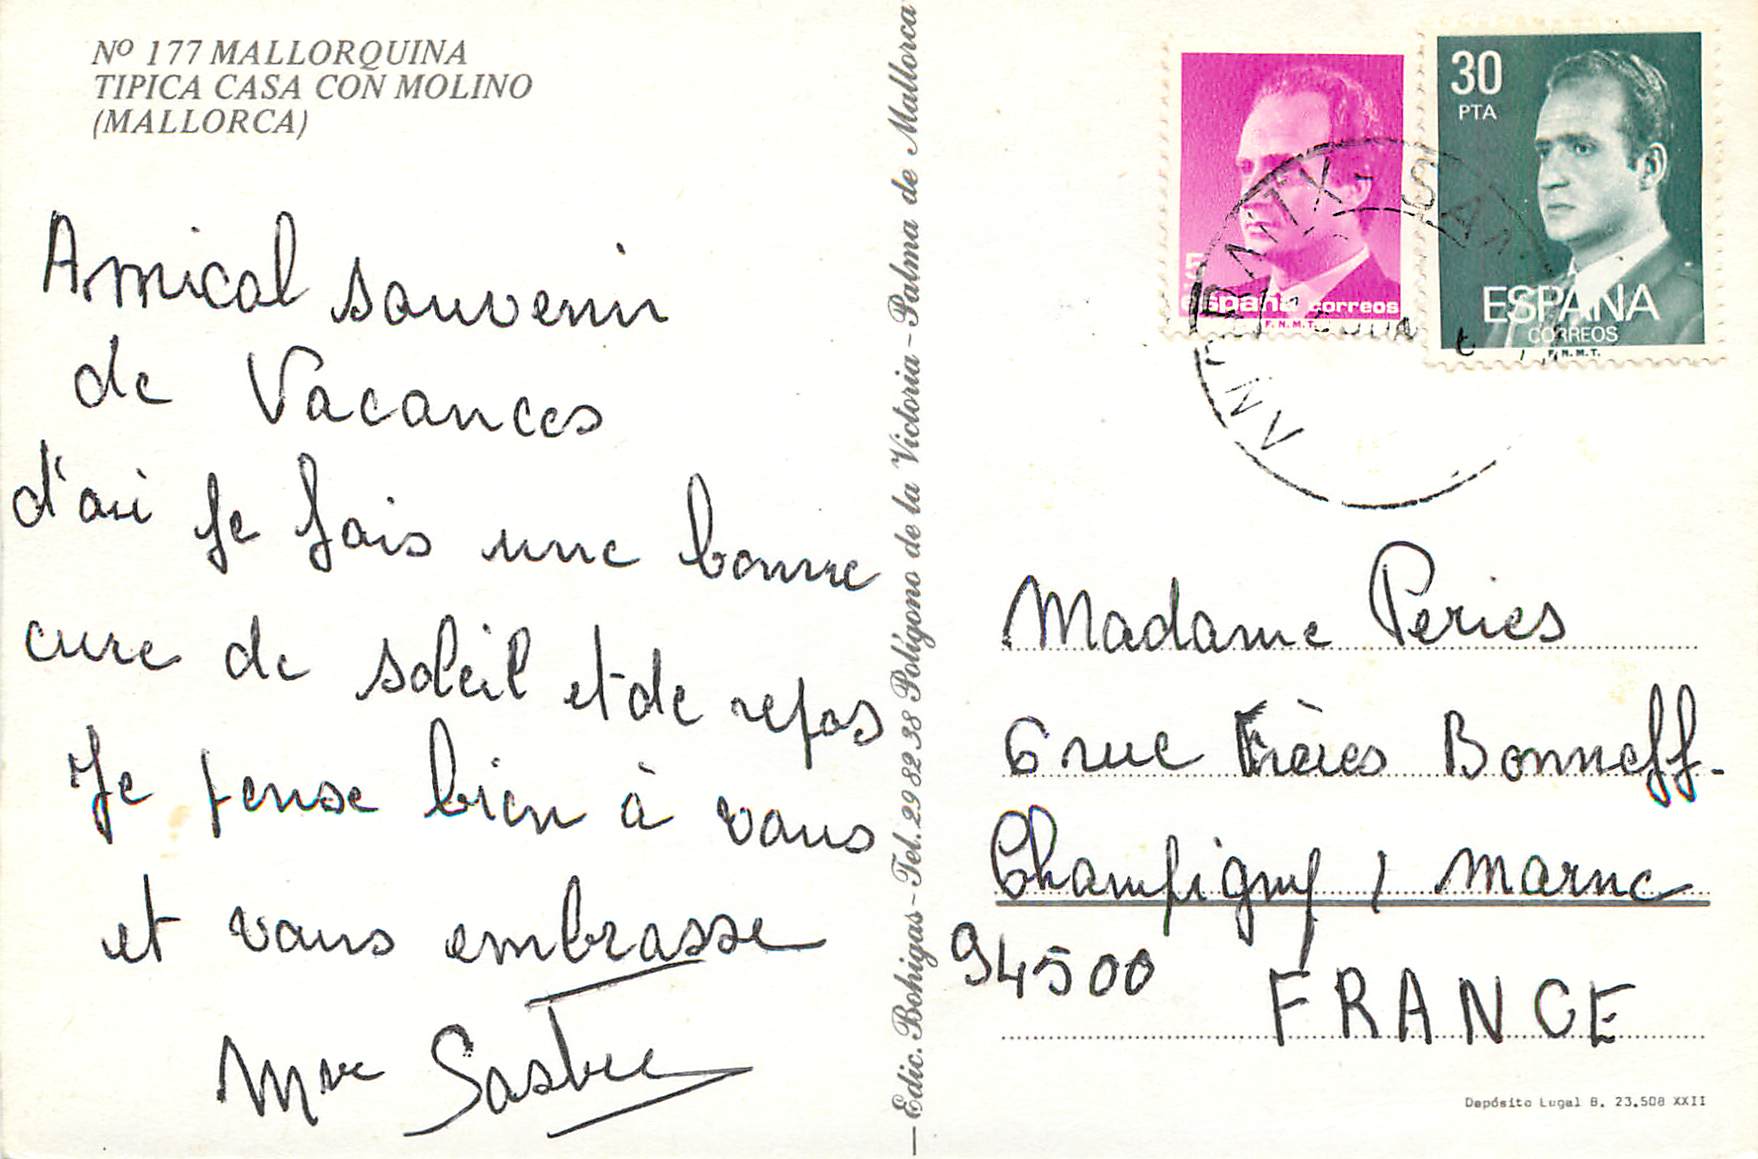 Nº 177 MALLORQUINA
TIPICA CASA CON MOLINO
(MALLORCA)
Amical souvenir
de Vacances
d'où je fais une bonne
cure de soleil et de repos
Je pense bien à vous
et vous embrasse
Mme Sastre
Edic. Bohigas - Tel. 29 82 38 Polígono de la Victoria - Palma de Mallorca
5
españa correos
F.N.M.T.
30
PTA
ESPAÑA
CORREOS
F.N.M.T.
Madame Peries
6 rue Frères Bonneff.
Champigny / Marne
94500 FRANCE
Depósito Lugal B. 23.508 XXII